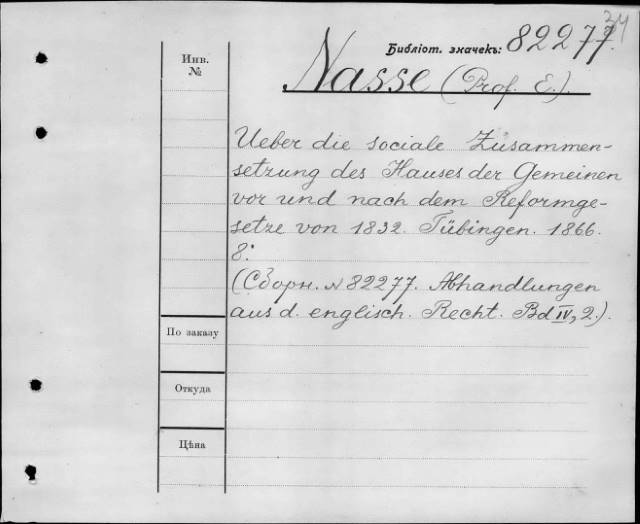 34
Библіот. значекъ: 82277.
Инв.
№
Nasse (Prof. E.).
Ueber die sociale Zusammen-
setzung des Hauses der Gemeinen
vor und nach dem Reformge-
setze von 1832. Tübingen. 1866.
8:
(Сборн. № 82277. Abhandlungen
aus d. englisch. Recht. Bd IV, 2.).
По заказу
Откуда
Цѣна